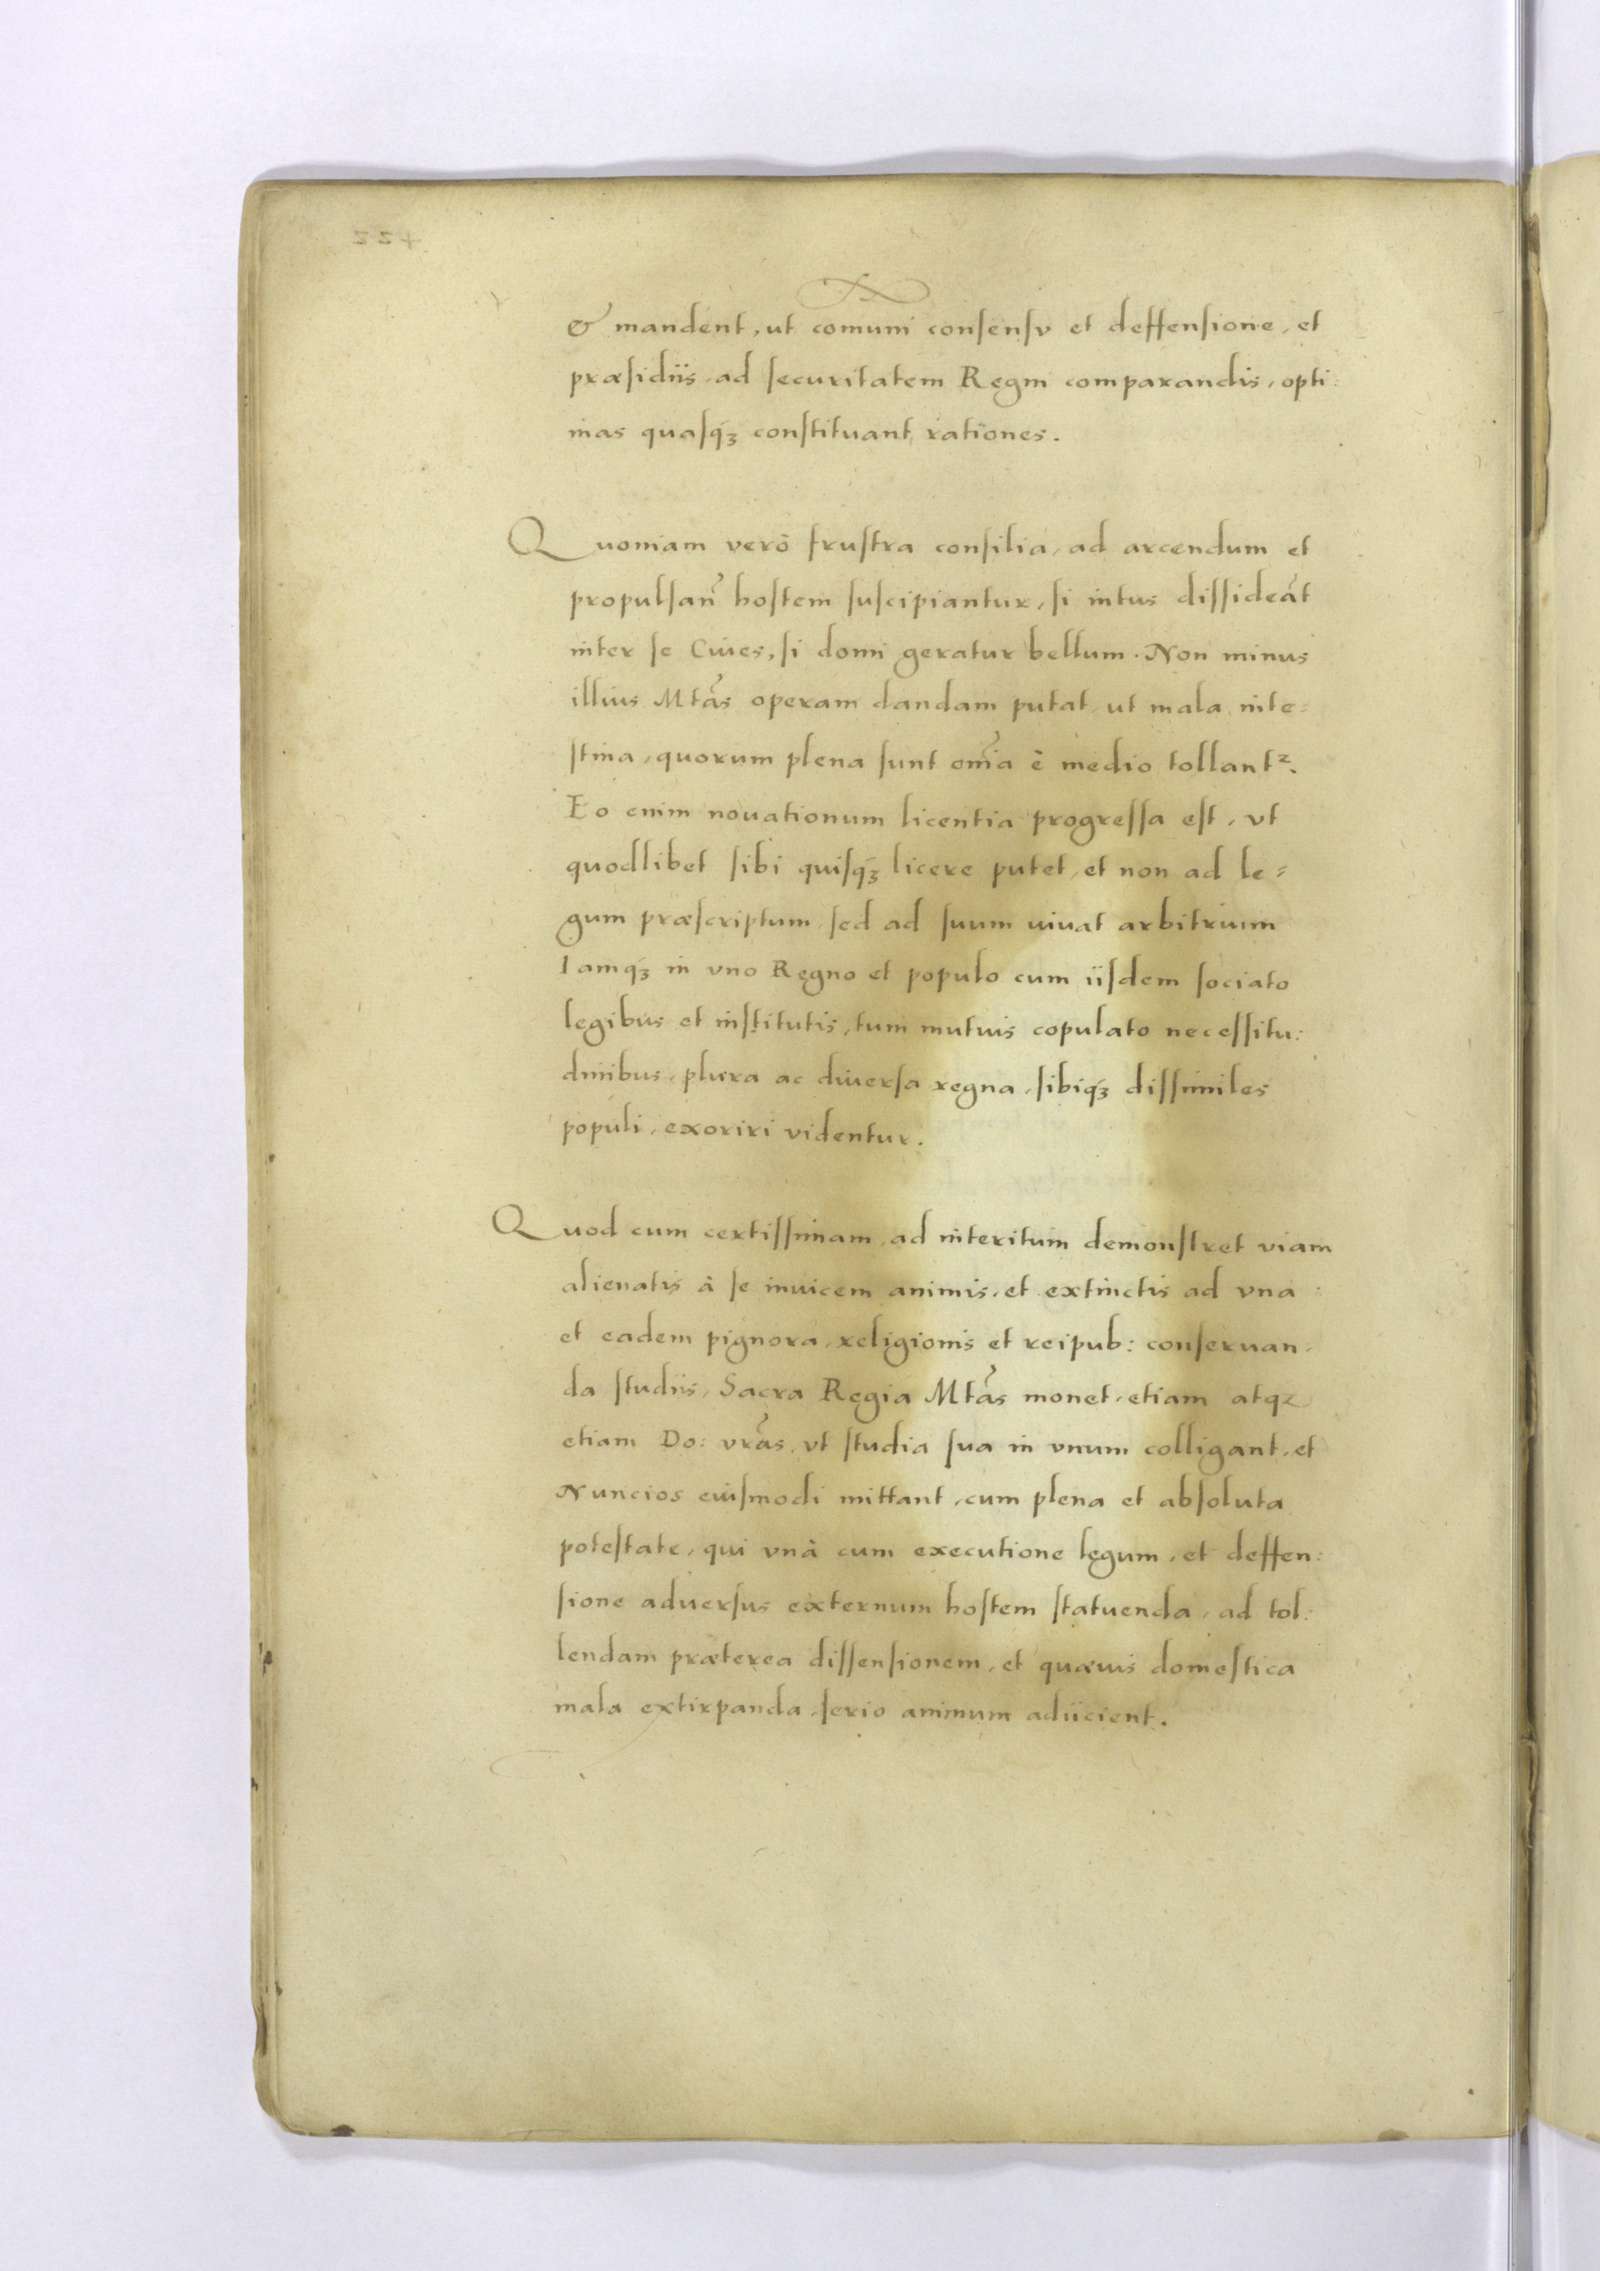 & mandent, ut comuni consensv et deffensione, et
præsidiis, ad securitatem Regni comparandis, opti:
mas quasq́ꝫ constituant rationes.
Quoniam verò frustra consilia, ad arcendum et
propulsan̄ hostem suscipiantur, si intus dissideāt
inter se Ciues, si domi geratur bellum. Non minus
illius Mtas operam dandam putat, ut mala inte=
stina, quorum plena sunt om̄ia è medio tollantᷣ.
Eo enim nouationum licentia progressa est, vt
quodlibet sibi quisq́ꝫ licere putet, et non ad le=
gum præscriptum, sed ad suum viuat arbitrium
Iamq́ꝫ in vno Regno et populo cum iisdem sociato
legibus et institutis, tum mutuis copulato necessitu:
dinibus, plura ac diuersa regna, sibiq́ꝫ dissimiles
populi, exoriri videntur.
Quod cum certissimam, ad interitum demonstret viam
alienatis à se inuicem animis, et extinctis ad vna
et eadem pignora, religionis et reipub: conseruan,
da studiis, Sacra Regia Mtas monet, etiam atqꝫ
etiam Do: vr̄as, vt studia sua in vnum colligant, et
Nuncios eiusmodi mittant, cum plena et absoluta
potestate, qui vnà cum executione legum, et deffen:
sione aduersus externum hostem statuenda, ad tol:
lendam præterea dissensionem, et quæuis domestica
mala extirpanda, serio animum adiicient.